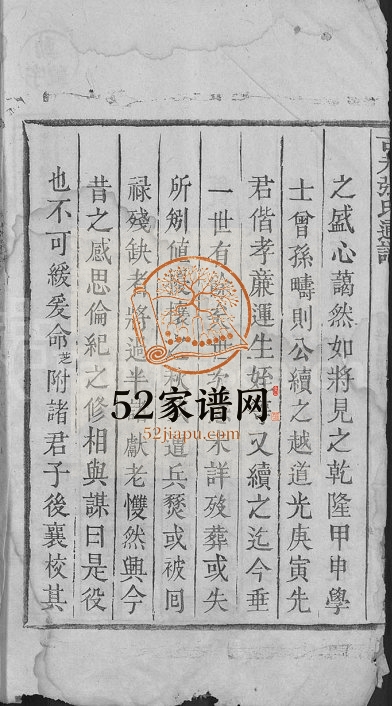 張氏通譜
之盛心藹然如將見之乾隆甲申學
士曾孫疇則公續之越道光庚寅先
君偕孝亷運生姪又續之迄今垂
一世有餘矣世次未詳殁葬或失
所剏值秋遭兵燹或被囘
祿殘缺者將過半獻老戄然興今
昔之感思倫紀之修相與謀曰是役
也不可緩爰命芝附諸君子後襄校其
52家谱网
52jiapu.com